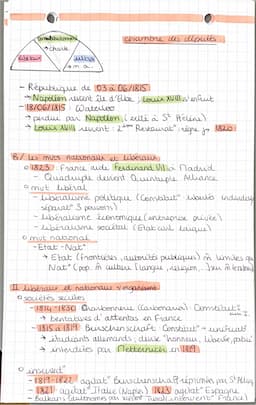 constitutionnel
→ charte
chambre des députés
- République de 03 à 06/1815
→ Napoléon revient île d'Elbe, Louis XVIII s'enfuit
- 18/06/1815 : Waterloo
→ perdue par Napoléon (exilé à St Hélène)
→ Louis XVIII revient : 2nde Restaurat° : règne jq 1820
B/ Les mvts nationale et libéraux
○ 1823 : France aide Ferdinand VII à Madrid
- Quadruple devient Quintuple Alliance
○ mvt libéral
- libéralisme politique (Constitut° liberté
séparat° 3 pouvoirs)
- libéralisme économique (entreprise privée)
- libéralisme sociétal (Etat civil laïque)
○ mvt national
- Etat - Nat°
→ Etat (frontières, autorités publiques) m̂ limites
Nat° (pop. m̂ culture (langue, religion...)
II libéraux et nationaux s'organisent
○ sociétés secrètes
- 1814-1830 Charbonnerie (Carbonara) : Constitut°
→ tentatives d'attentas en France
- 1815 à 1819 Burschenschaft : Constitut° + unificat°
→ étudiants allemands ; devise "honneur, liberté, patrie"
→ interdites par Metternich en 1819
○ insurrect°
- 1817-1821 agitat° Burschenschaft réprimée par St Alliance
- 1821 agitat° Italie (Naples) 1823 agitat° Espagne
- Balkans (autonomes par